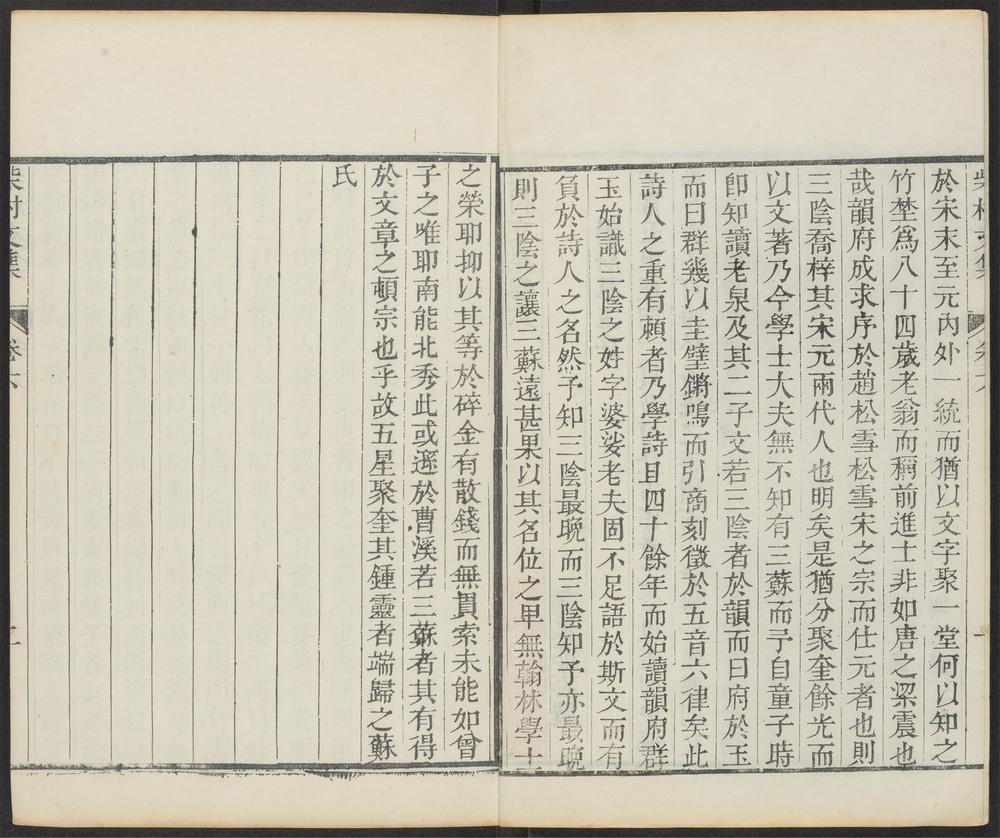 於宋末至元內外一統而猶以文字聚一堂何以知之
竹埜為八十四歲老翁而稱前進士非如唐之梁震也
哉韻府成求序於趙松雪松雪宋之宗而仕元者也則
三陰喬梓其宋元兩代人也明矣是猶分聚奎餘光而
以文著乃今學士大夫無不知有三蘇而予自童子時
卽知讀老泉及其二子文若三陰者於韻而曰府於玉
而曰群幾以圭璧鏘鳴而引商刻徵於五音六律矣此
詩人之重有頼者乃學詩且四十餘年而始讀韻府群
玉始識三陰之姓字婆娑老夫固不足語於斯文而有
負於詩人之名然予知三陰最晚而三陰知予亦最晚
則三陰之讓三蘇遠甚果以其名位之卑無翰林學士
之榮耶抑以其等於碎金有散錢而無貫索未能如曾
子之唯耶南能北秀此或遜於曹溪若三蘇者其有得
於文章之頓宗也乎故五星聚奎其鍾靈者端歸之蘇
氏
柴村文集
卷六
二